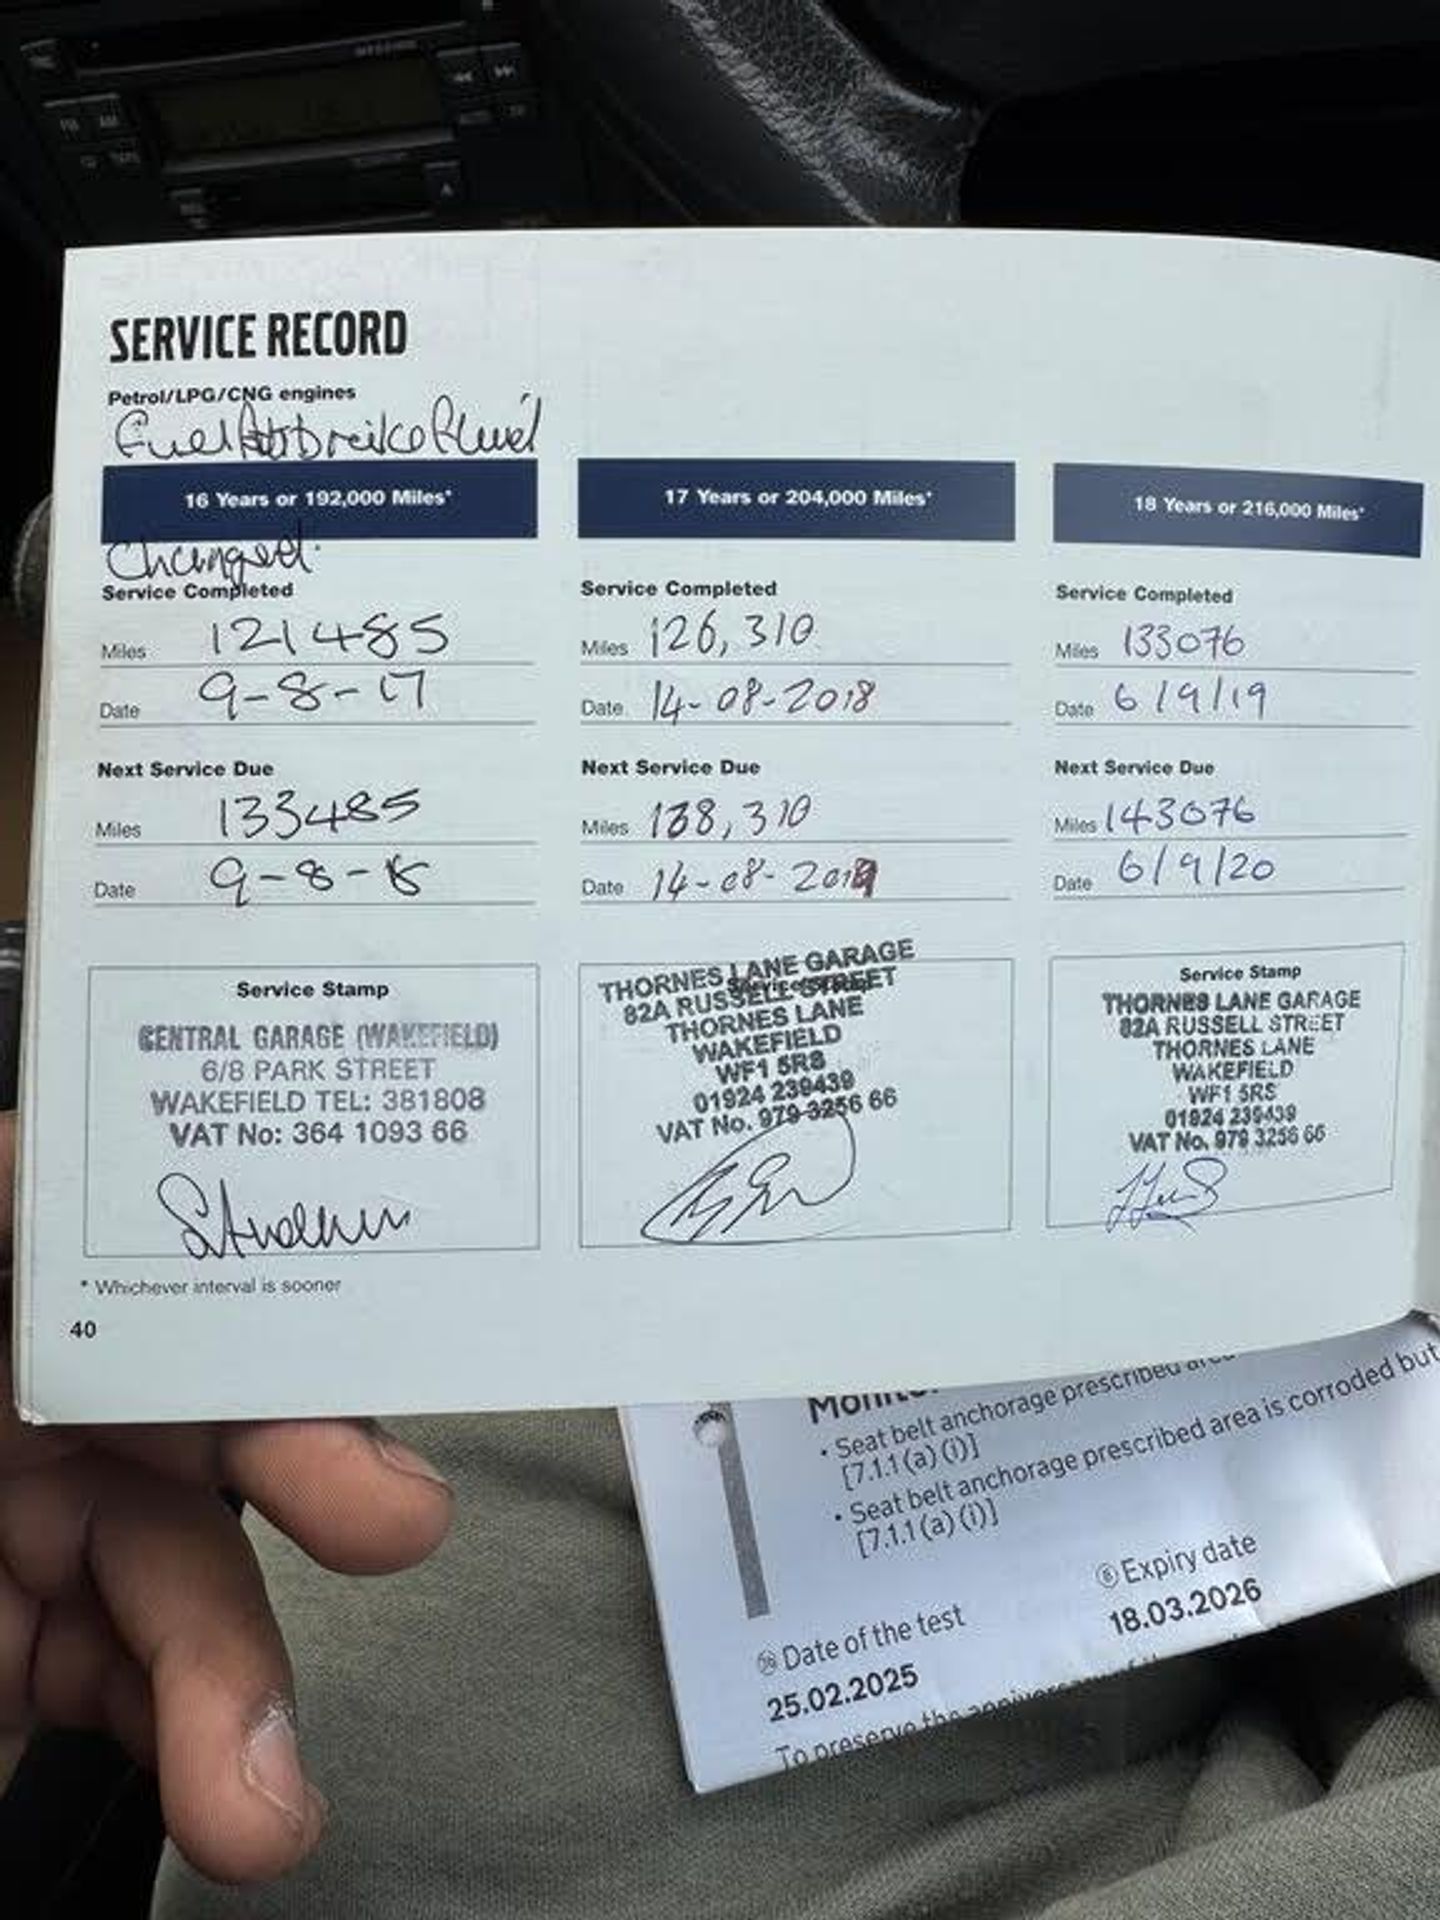 SERVICE RECORD
Petrol/LPG/CNG engines
Fuel brake fluid
16 Years or 192,000 Miles*
Changed.
Service Completed
Miles 121485
Date 9-8-17
Next Service Due
Miles 133485
Date 9-8-18
Service Stamp
CENTRAL GARAGE (WAKEFIELD)
6/8 PARK STREET
WAKEFIELD TEL: 381808
VAT No: 364 1093 66
17 Years or 204,000 Miles*
Service Completed
Miles 126,310
Date 14-08-2018
Next Service Due
Miles 138,310
Date 14-08-2019
Service Stamp
THORNES LANE GARAGE
82A RUSSELL STREET
THORNES LANE
WAKEFIELD
WF1 5RS
01924 239439
VAT No. 979 3256 66
18 Years or 216,000 Miles*
Service Completed
Miles 133076
Date 6/9/19
Next Service Due
Miles 143076
Date 6/9/20
Service Stamp
THORNES LANE GARAGE
82A RUSSELL STREET
THORNES LANE
WAKEFIELD
WF1 5RS
01924 239439
VAT No. 979 3256 66
* Whichever interval is sooner
40
• Seat belt anchorage prescribed
[7.1.1 (a) (i)]
• Seat belt anchorage prescribed area is corroded but
[7.1.1 (a) (i)]
Date of the test
25.02.2025
Expiry date
18.03.2026
To preserve the anniversary